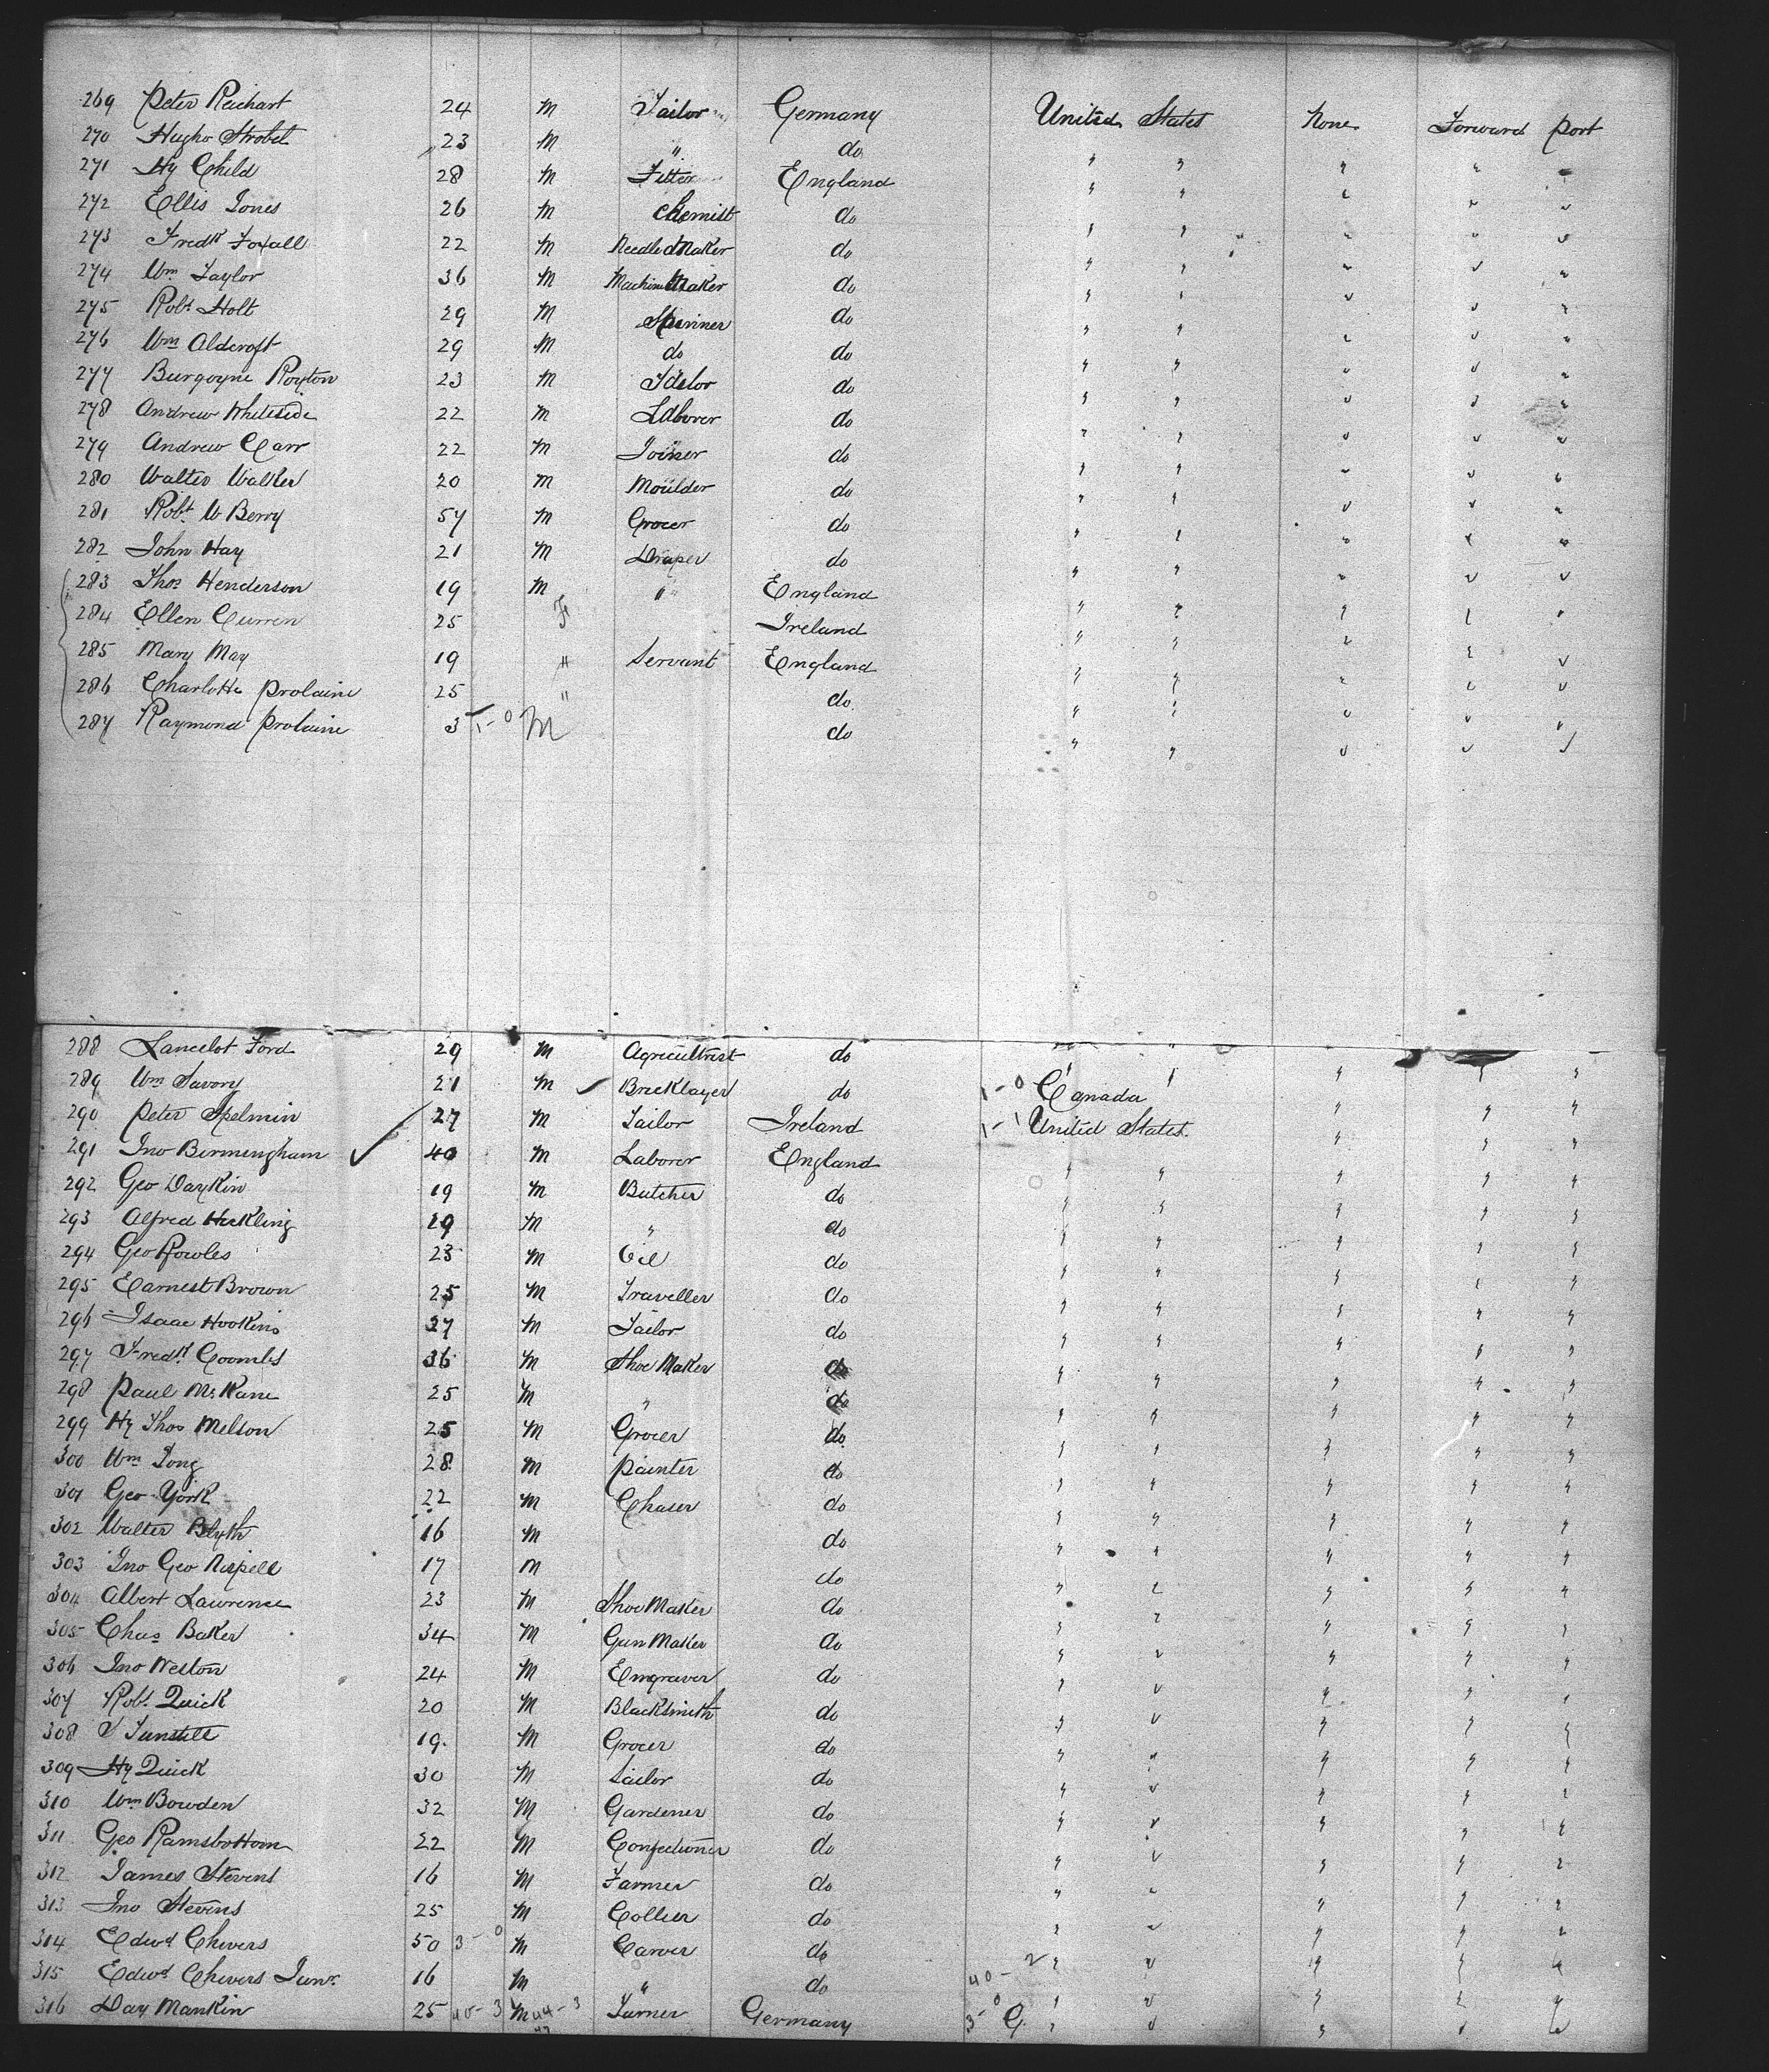 269 Peter Reichart 24 M Tailor Germany United States None Forward Port
270 Hugho Strobel 23 M " do " " " " "
271 Hy Child 28 M Fitter England " " " " "
272 Ellis Jones 26 M Chemist do " " " " "
273 Fredk Foxall 22 M Needle Maker do " " " " "
274 Wm Taylor 36 M Machine Maker do " " " " "
275 Robt Holt 29 M Spinner do " " " " "
276 Wm Aldcroft 29 M do do " " " " "
277 Burgoyne Royton 23 M Tailor do " " " " "
278 Andrew Whiteside 22 M Laborer do " " " " "
279 Andrew Carr 22 M Joiner do " " " " "
280 Walter Walker 20 M Moulder do " " " " "
281 Robt W Berry 57 M Grocer do " " " " "
282 John Hay 21 M Draper do " " " " "
283 Thos Henderson 19 M " England " " " " "
284 Ellen Curren 25 F Ireland " " " " "
285 Mary May 19 " Servant England " " " " "
286 Charlotte Prolaine 25 " do " " " " "
287 Raymond Prolaine 3 1-0 M do " " " " "
288 Lancelot Ford 29 M Agriculturist do " " " " "
289 Wm Savory 21 M Bricklayer do 1-0 Canada " " "
290 Peter Spelmin 27 M Tailor Ireland 1-1 United States " " "
291 Jno Birmengham 40 M Laborer England " " " " "
292 Geo Daykin 19 M Butcher do " " " " "
293 Alfred Heckling 19 M " do " " " " "
294 Geo Rowles 23 M Oil do " " " " "
295 Earnest Brown 25 M Traveller do " " " " "
296 Isaac Hookins 27 M Tailor do " " " " "
297 Fredk Coombs 36 M Shoe Maker do " " " " "
298 Paul McKane 25 M " do " " " " "
299 Hy Thos Melson 25 M Grocer do " " " " "
300 Wm Long 28 M Painter do " " " " "
301 Geo York 22 M Chaser do " " " " "
302 Walter Blyth 16 M do " " " " "
303 Jno Geo Rispell 17 M do " " " " "
304 Albert Lawrence 23 M Shoe Maker do " " " " "
305 Chas Baker 34 M Gun Maker do " " " " "
306 Jno Weston 24 M Engraver do " " " " "
307 Robt Quick 20 M Blacksmith do " " " " "
308 J Tunstill 19 M Grocer do " " " " "
309 Hy Quick 30 M Sailor do " " " " "
310 Wm Bowden 32 M Gardener do " " " " "
311 Geo Ramsbottom 22 M Confectioner do " " " " "
312 James Stevens 16 M Farmer do " " " " "
313 Jno Stevens 25 M Collier do " " " " "
314 Edwd Chivers 50 3-0 M Carver do " " " " "
315 Edwd Chivers Junr 16 M " do 40-2 " " " " "
316 Day Mankin 25 40-3 M 44-3 Turner Germany 3-0 G " " " " "
47